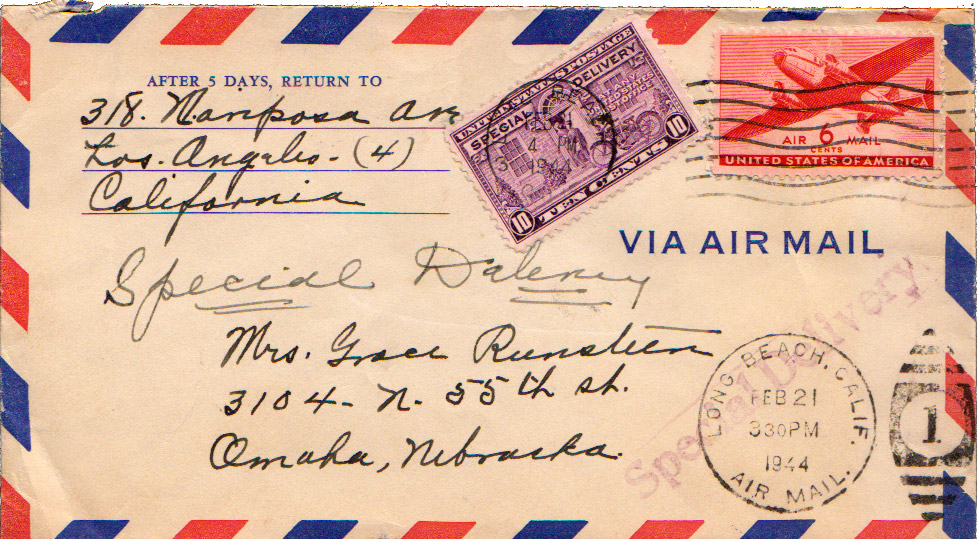 AFTER 5 DAYS, RETURN TO
318. Mariposa Ave
Los. Angeles. (4)
California
UNITED STATES POSTAGE
SPECIAL DELIVERY
10 TEN CENTS 10
AIR 6 MAIL
CENTS
UNITED STATES OF AMERICA
VIA AIR MAIL
Special Delivery
Special Delivery
Mrs. Grace Runsteen
3104 - N. 55th St.
Omaha, Nebraska.
LONG BEACH, CALIF.
FEB 21
330PM
1944
AIR MAIL.
1